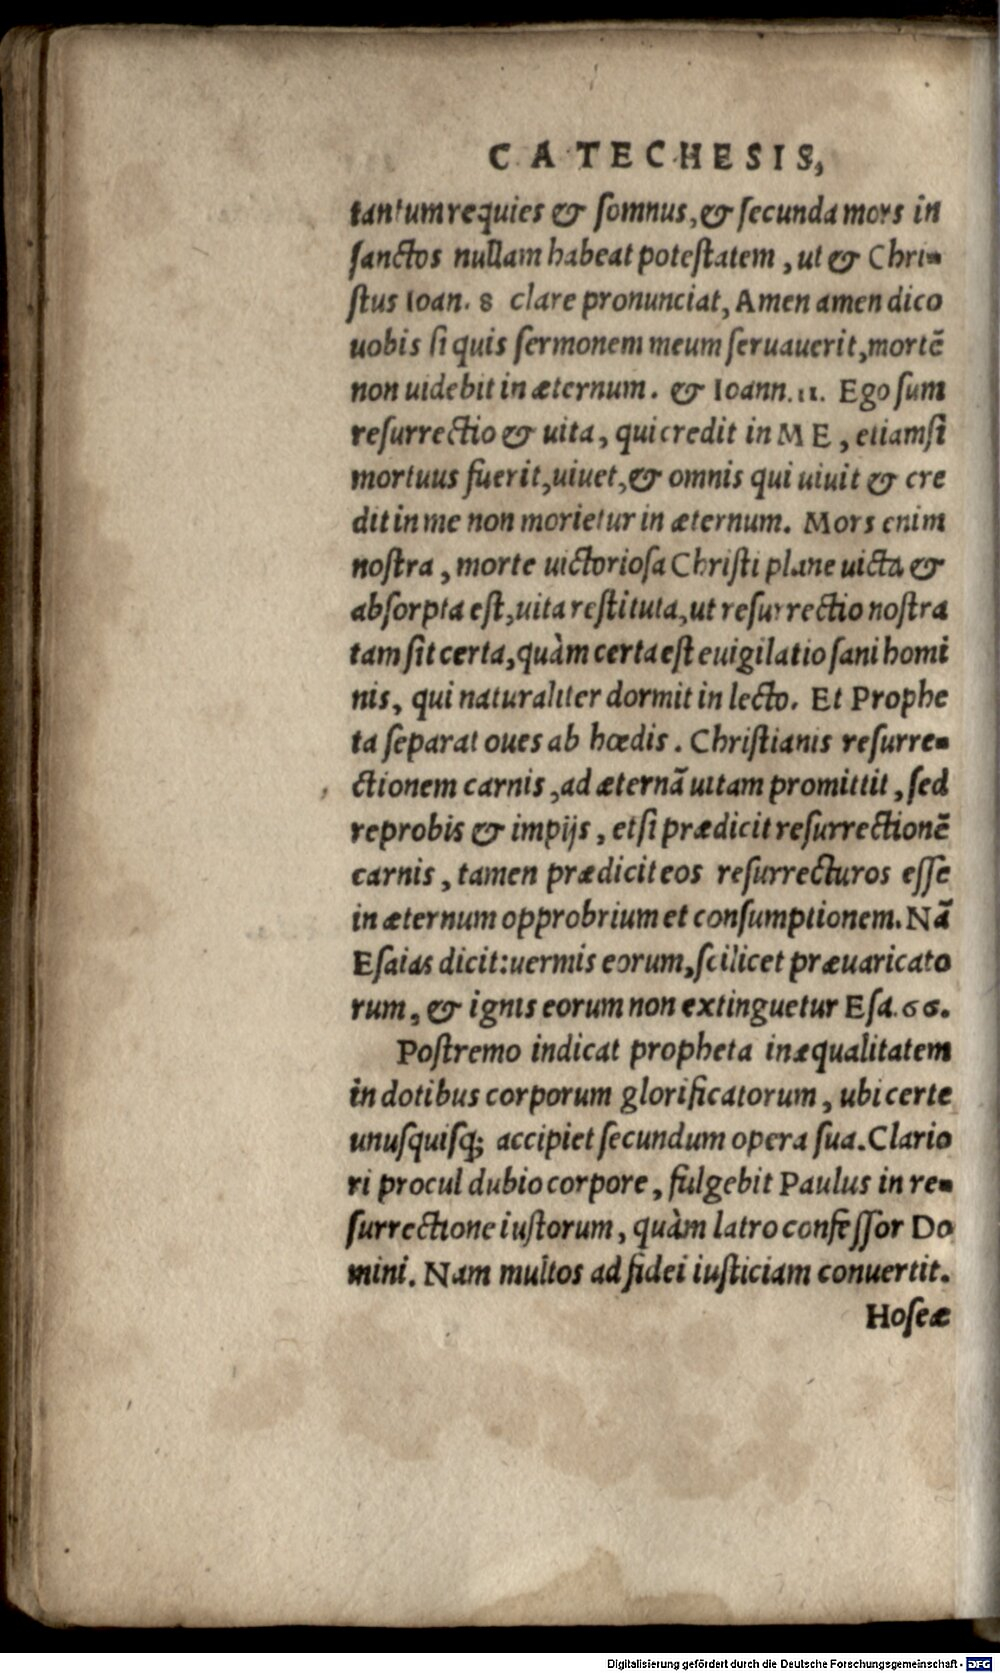 CATECHESIS,
tantum requies & somnus, & secunda mors in
sanctos nullam habeat potestatem, ut & Chri-
stus Ioan. 8 clare pronunciat, Amen amen dico
uobis si quis sermonem meum seruauerit, mortē
non uidebit in æternum. & Ioann. 11. Ego sum
resurrectio & uita, qui credit in ME, etiamsi
mortuus fuerit, uiuet, & omnis qui uiuit & cre
dit in me non morietur in æternum. Mors enim
nostra, morte uictoriosa Christi plane uicta &
absorpta est, uita restituta, ut resurrectio nostra
tam sit certa, quàm certa est euigilatio sani homi
nis, qui naturaliter dormit in lecto. Et Prophe
ta separat oues ab hœdis. Christianis resurre-
ctionem carnis, ad æternā uitam promittit, sed
reprobis & impijs, etsi prædicit resurrectionē
carnis, tamen prædicit eos resurrecturos esse
in æternum opprobrium et consumptionem. Nā
Esaias dicit: uermis eorum, scilicet præuaricato
rum, & ignis eorum non extinguetur Esa. 66.
Postremo indicat propheta inæqualitatem
in dotibus corporum glorificatorum, ubi certe
unusquisq; accipiet secundum opera sua. Clario
ri procul dubio corpore, fulgebit Paulus in re-
surrectione iustorum, quàm latro confessor Do
mini. Nam multos ad fidei iusticiam conuertit.
Hoseæ
Digitalisierung gefördert durch die Deutsche Forschungsgemeinschaft - DFG